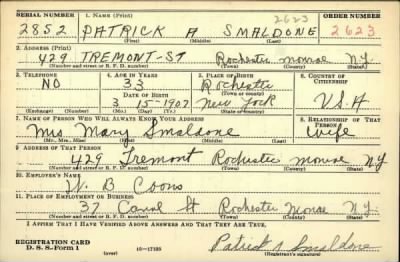 SERIAL NUMBER 1. NAME (Print) ORDER NUMBER
2623
2852 PATRICK A SMALDONE 2623
(First) (Middle) (Last)
2. ADDRESS (Print)
429 TREMONT-ST Rochester monroe N.Y.
(Number and street or R. F. D. number) (Town) (County) (State)
3. TELEPHONE 4. AGE IN YEARS 5. PLACE OF BIRTH 6. COUNTRY OF CITIZENSHIP
NO 33 Rochester
DATE OF BIRTH (Town or county)
3 15-1907 New York U.S.A
(Exchange) (Number) (Mo.) (Day) (Yr.) (State or country)
7. NAME OF PERSON WHO WILL ALWAYS KNOW YOUR ADDRESS 8. RELATIONSHIP OF THAT PERSON
Mrs Mary Smaldone wife
(Mr., Mrs., Miss) (First) (Middle) (Last)
9. ADDRESS OF THAT PERSON
429 Tremont Rochester monroe NY
(Number and street or R. F. D. number) (Town) (County) (State)
10. EMPLOYER'S NAME
W. B Coons
11. PLACE OF EMPLOYMENT OR BUSINESS
37 Canal St Rochester Monroe N.Y.
(Number and street or R. F. D. number) (Town) (County) (State)
I AFFIRM THAT I HAVE VERIFIED ABOVE ANSWERS AND THAT THEY ARE TRUE.
REGISTRATION CARD
D. S. S. Form 1 (over) 16-17105 Patrick A Smaldone
(Registrant's signature)